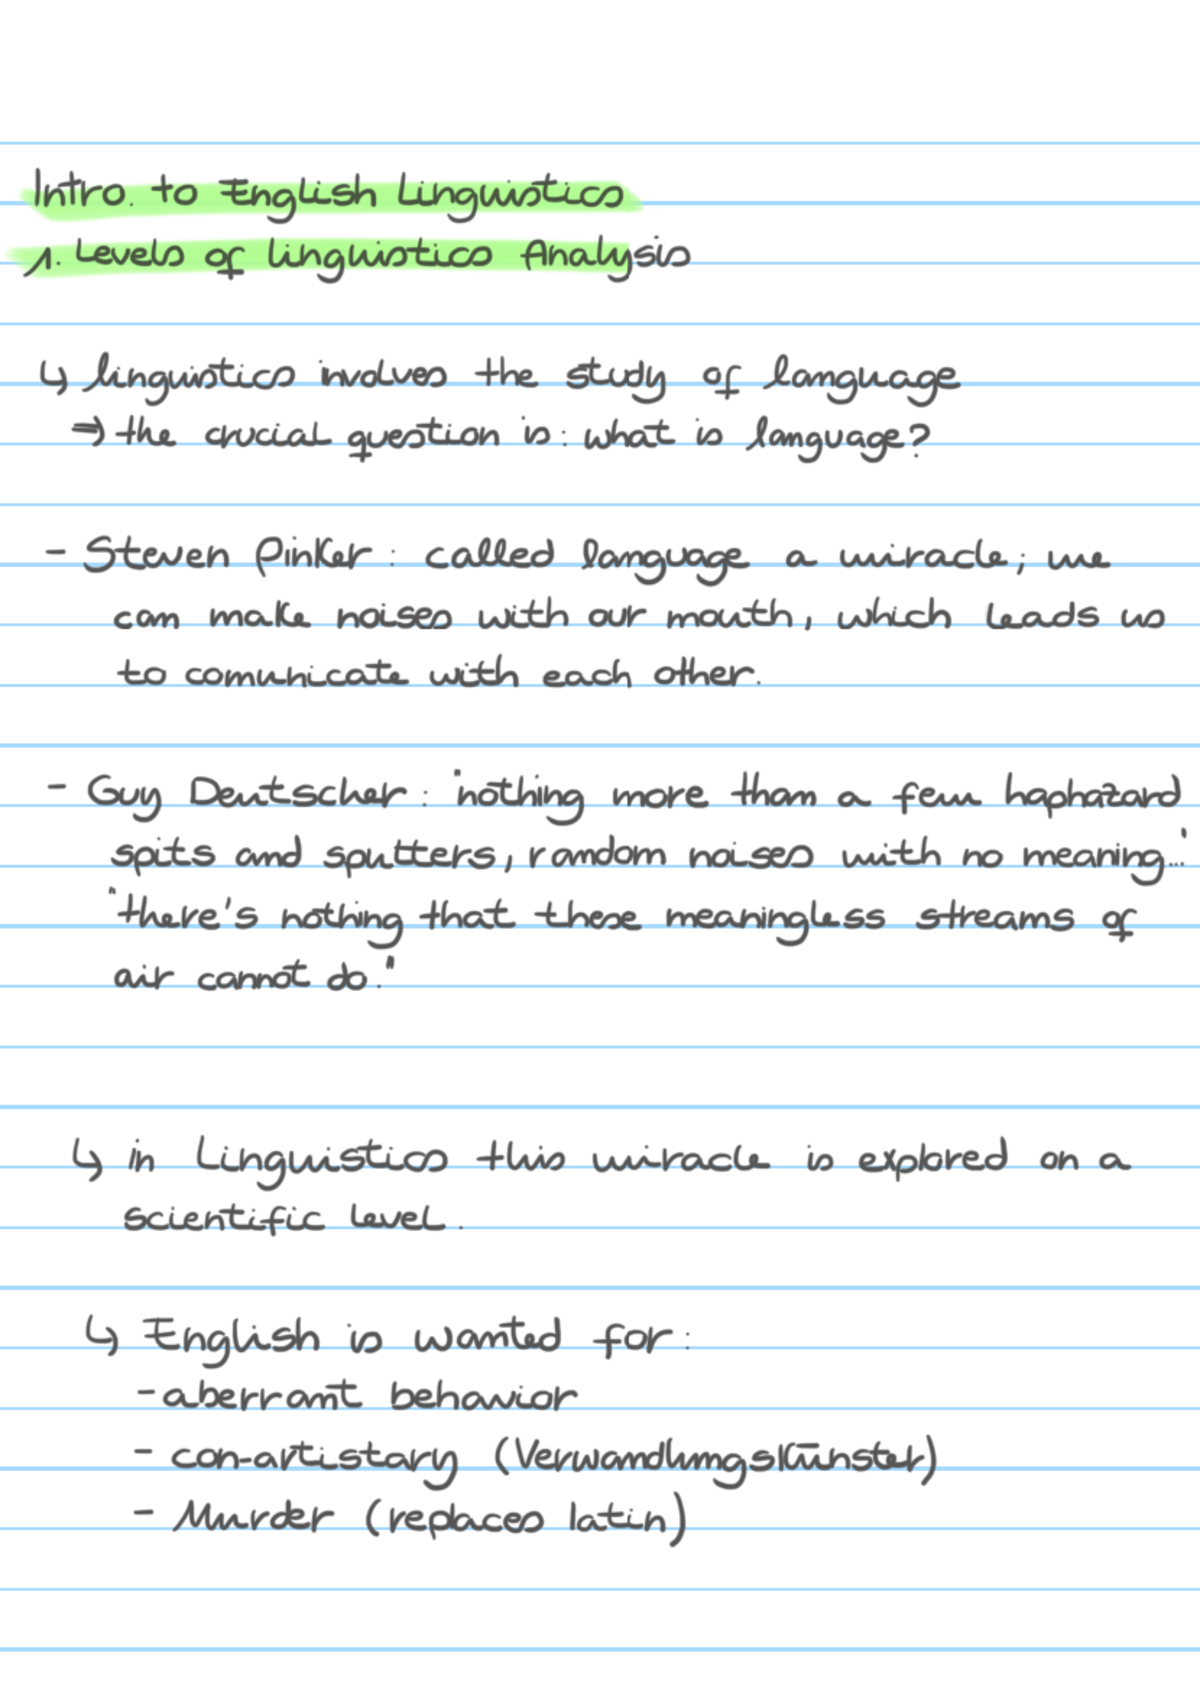 Intro. to English Linguistics
1. Levels of Linguistics Analysis
↳ linguistics involves the study of language
⇒ the crucial question is: what is language?
- Steven Pinker: called language a miracle; we
can make noises with our mouth, which leads us
to comunicate with each other.
- Guy Deutscher: "nothing more than a few haphazard
spits and sputters, random noises with no meaning..."
"there's nothing that these meaningless streams of
air cannot do."
↳ in Linguistics this miracle is explored on a
scientific level.
↳ English is wanted for:
- aberrant behavior
- con-artistary (Verwandlungskünstler)
- Murder (replaces latin)